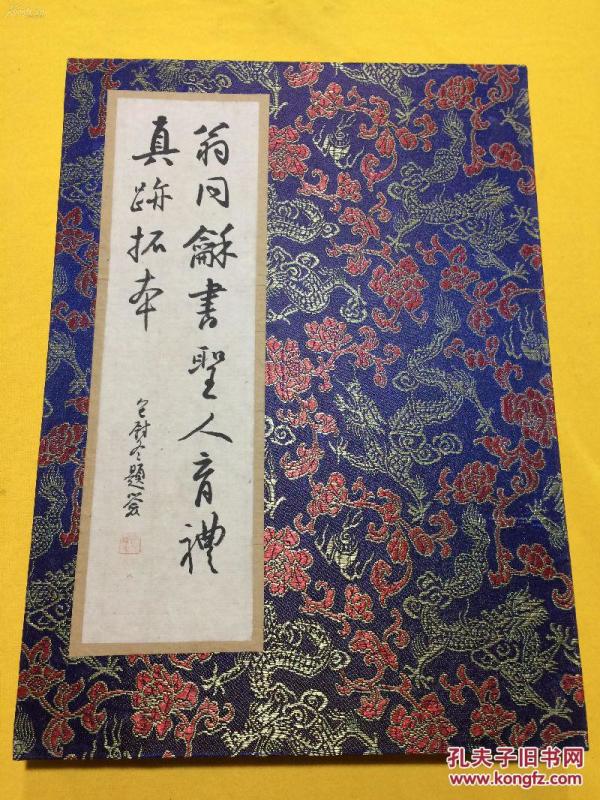 翁同龢書聖人有禮
真跡拓本
題簽
孔夫子旧书网
www.kongfz.com